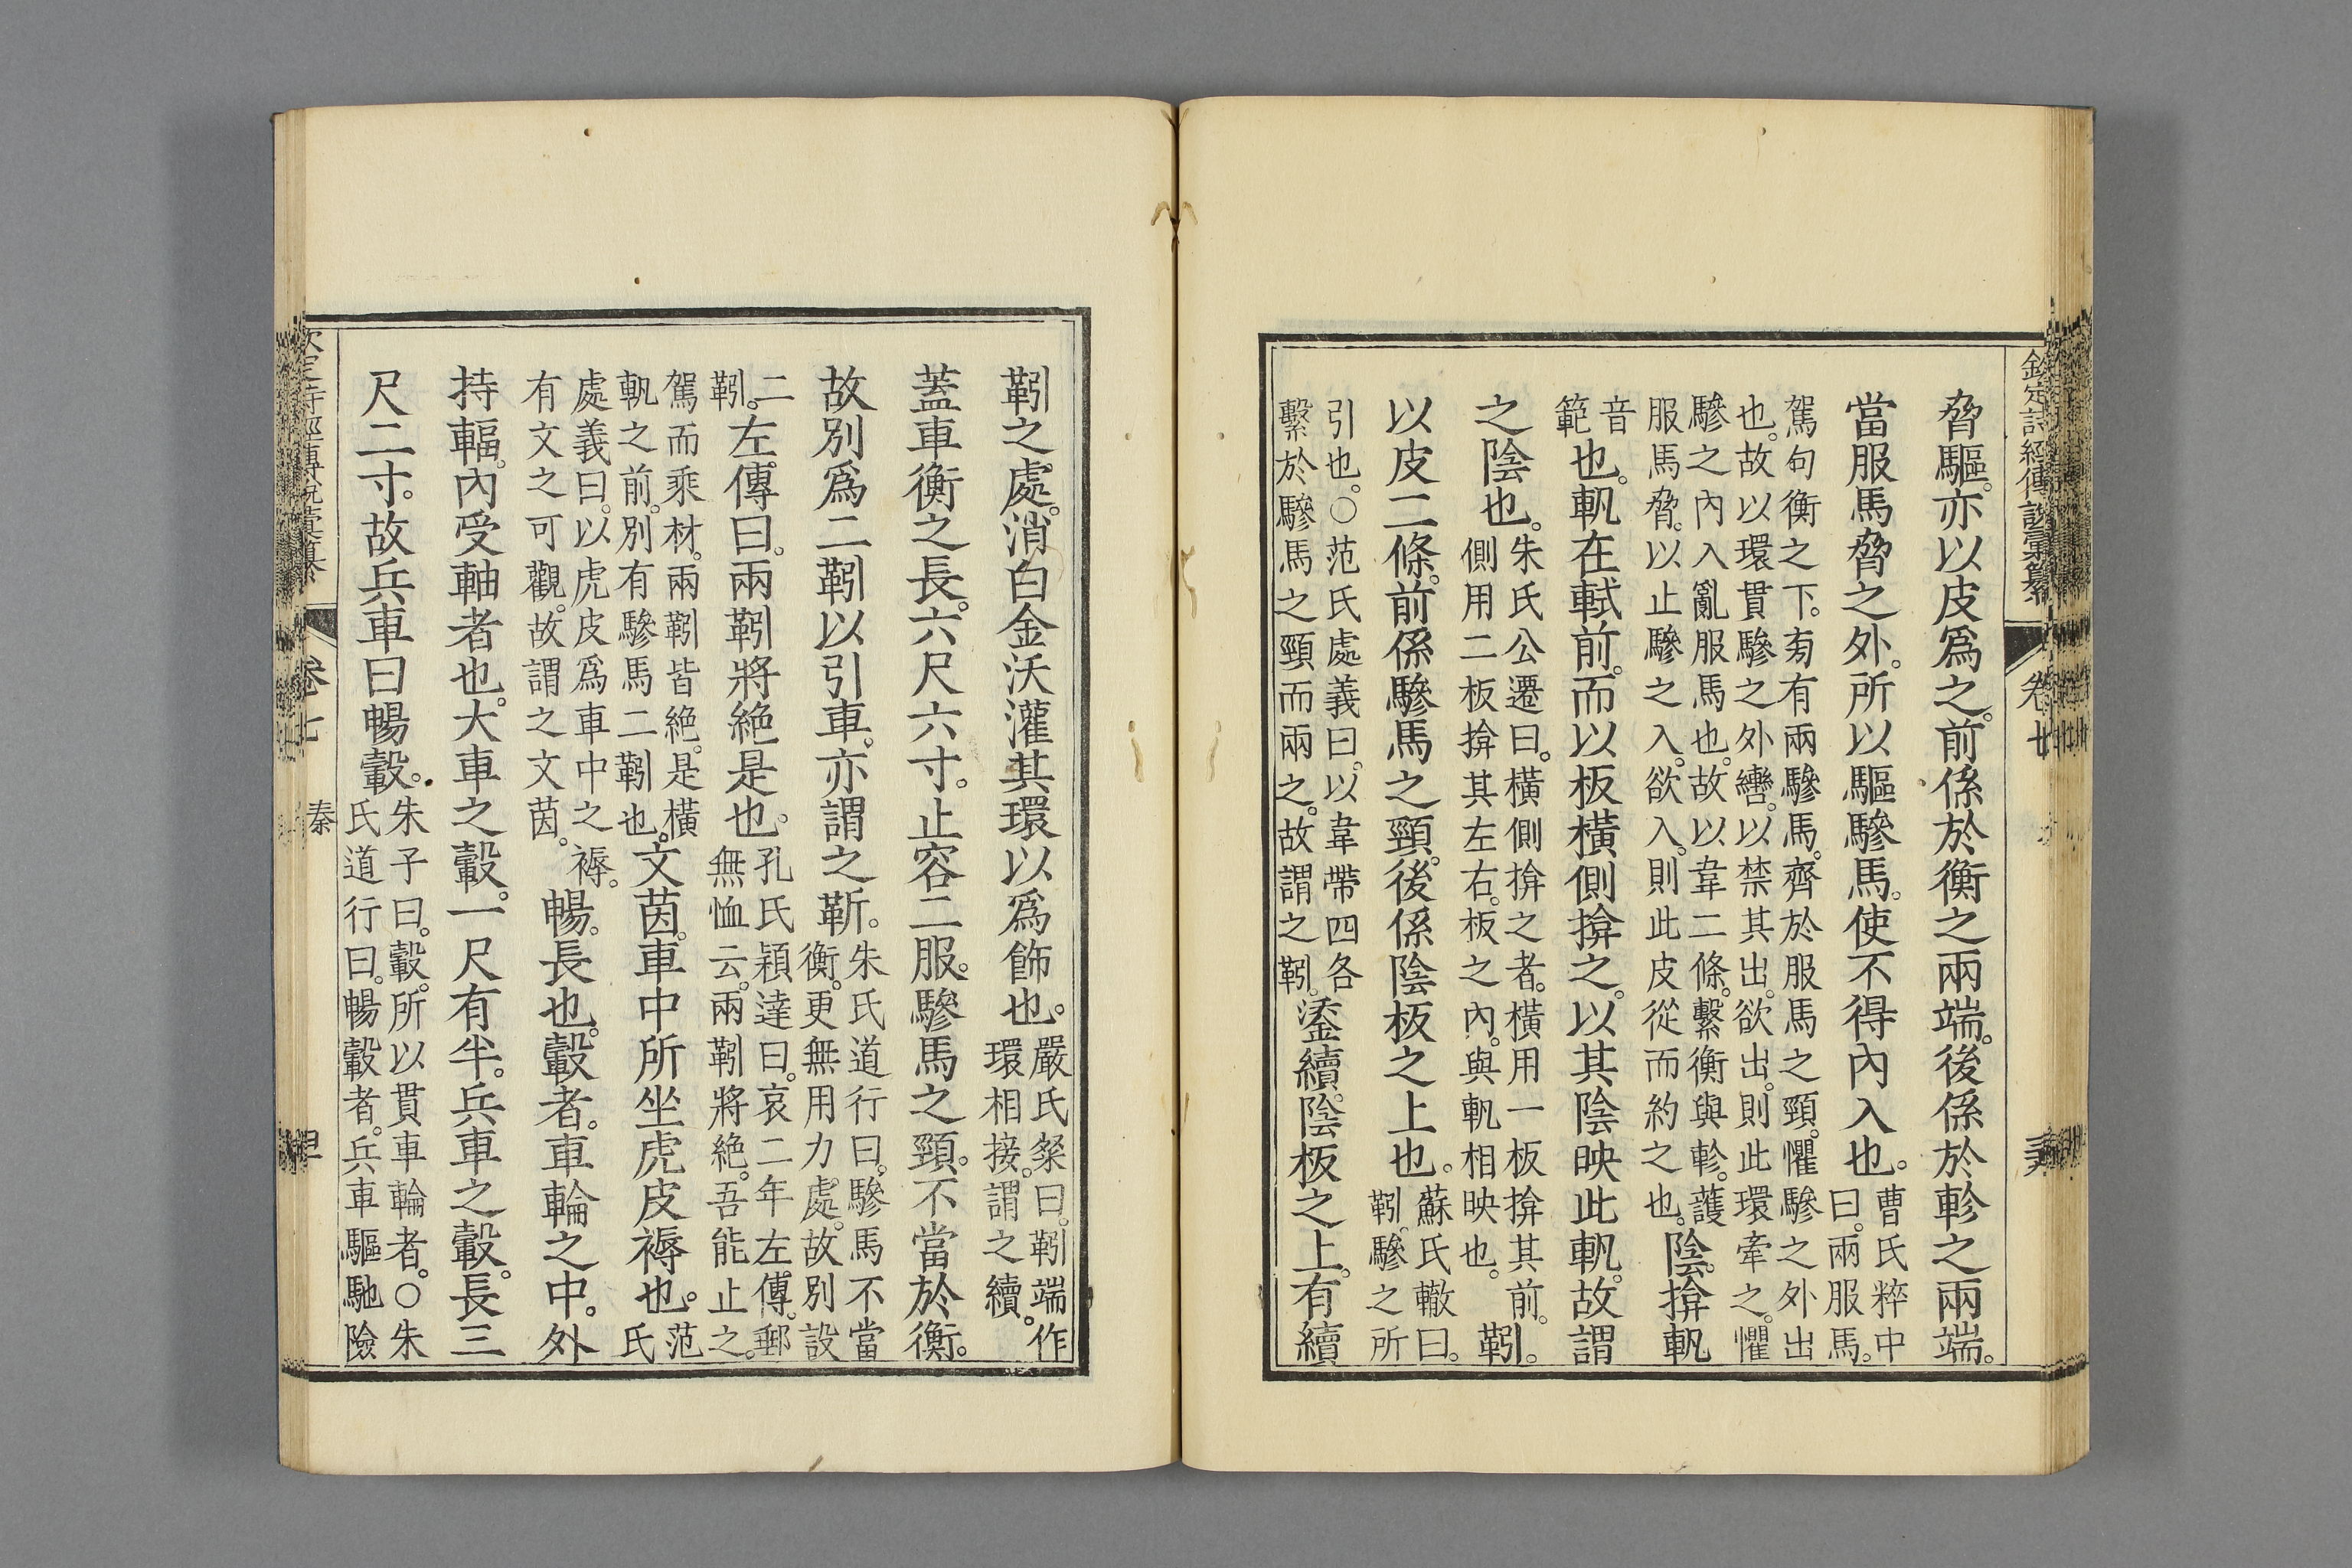 欽定詩經傳說彙纂 卷
脅驅。亦以皮爲之。前係於衡之兩端。後係於軫之兩端。
當服馬脅之外。所以驅驂馬。使不得內入也。曹氏粹中曰。兩服馬。
駕句衡之下。旁有兩驂馬。齊於服馬之頸。懼驂之外出也。故以環貫驂之外轡。以禁其出。欲出。則此環牽之。懼
驂之內入亂服馬也。故以韋二條。繫衡與軫。護服馬脅。以止驂之入。欲入。則此皮從而約之也。陰。揜軓
音範也。軓在軾前。而以板橫側揜之。以其陰映此軓。故謂
之陰也。朱氏公遷曰。橫側揜之者。橫用一板揜其前。側用二板揜其左右。板之內。與軓相映也。靷。
以皮二條。前係驂馬之頸。後係陰板之上也。蘇氏轍曰。靷。驂之所
引也。〇范氏處義曰。以韋帶四各繫於驂馬之頸而兩之。故謂之靷。鋈續。陰板之上。有續
靷之處。消白金沃灌其環以爲飾也。嚴氏粲曰。靷端作環相接。謂之續。
蓋車衡之長。六尺六寸。止容二服。驂馬之頸。不當於衡。
故別爲二靷以引車。亦謂之靳。朱氏道行曰。驂馬不當衡。更無用力處。故別設
二靷。左傳曰。兩靷將絶是也。孔氏穎達曰。哀二年左傳。郵無恤云。兩靷將絶。吾能止之。
駕而乘材。兩靷皆絶。是橫軓之前。別有驂馬二靷也。文茵。車中所坐虎皮褥也。范氏
處義曰。以虎皮爲車中之褥。有文之可觀。故謂之文茵。暢。長也。轂者。車輪之中。外
持輻。內受軸者也。大車之轂。一尺有半。兵車之轂。長三
尺二寸。故兵車曰暢轂。朱子曰。轂。所以貫車輪者。〇朱氏道行曰。暢轂者。兵車驅馳險
欽定詩經傳說彙纂 卷七 秦